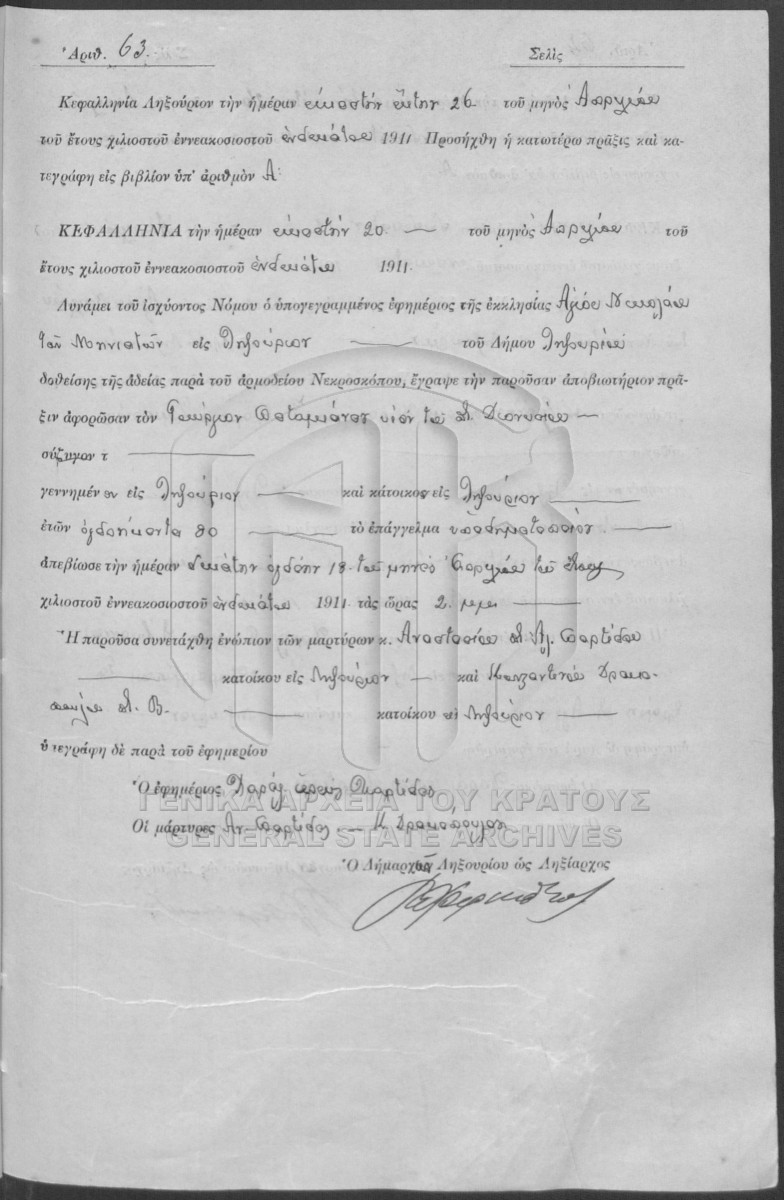 Ἀριθ. 63. Σελὶς
Κεφαλληνία Ληξούριον τὴν ἡμέραν εἰκοστὴν ἕκτην 26 τοῦ μηνὸς Ἀπριλίου
τοῦ ἔτους χιλιοστοῦ ἐννεακοσιοστοῦ ἑνδεκάτου 1911 Προσήχθη ἡ κατωτέρω πρᾶξις καὶ κα-
τεγράφη εἰς βιβλίον ὑπ' ἀριθμὸν Α΄
ΚΕΦΑΛΛΗΝΙΑ τὴν ἡμέραν εἰκοστὴν 20 — τοῦ μηνὸς Ἀπριλίου τοῦ
ἔτους χιλιοστοῦ ἐννεακοσιοστοῦ ἑνδεκάτου 1911.
Δυνάμει τοῦ ἰσχύοντος Νόμου ὁ ὑπογεγραμμένος ἐφημέριος τῆς ἐκκλησίας Ἁγίου Νικολάου
τῶν Μηνιατῶν εἰς Ληξούριον — τοῦ Δήμου Ληξουρίου
δοθείσης τῆς ἀδείας παρὰ τοῦ ἁρμοδείου Νεκροσκόπου, ἔγραψε τὴν παροῦσαν ἀποβιωτήριον πρᾶ-
ξιν ἀφορῶσαν τὸν Γεώργιον Ποταμιάνον υἱὸν τοῦ Διονυσίου —
σύζυγον τ —
γεννημένον εἰς Ληξούριον — καὶ κάτοικον εἰς Ληξούριον —
ἐτῶν ὀγδοήκοντα 80 — τὸ ἐπάγγελμα ὑποδηματοποιόν. —
ἀπεβίωσε τὴν ἡμέραν δεκάτην ὀγδόην 18 τοῦ μηνὸς Ἀπριλίου τοῦ ἔτους
χιλιοστοῦ ἐννεακοσιοστοῦ ἑνδεκάτου 1911 τὰς ὥρας 2. μ.μ. —
Ἡ παροῦσα συνετάχθη ἐνώπιον τῶν μαρτύρων κ. Ἀναστασίου
— κατοίκου εἰς Ληξούριον — καὶ Κωνσταντίνου Δρακο-
πούλου Β. — κατοίκου εἰς Ληξούριον —
ὑπεγράφη δὲ παρὰ τοῦ ἐφημερίου
Ὁ ἐφημέριος ἱερεὺς
Οἱ μάρτυρες Αν. — Κ Δρακόπουλος
Ὁ Δήμαρχος Ληξουρίου ὡς Ληξίαρχος
ΓΕΝΙΚΑ ΑΡΧΕΙΑ ΤΟΥ ΚΡΑΤΟΥΣ
GENERAL STATE ARCHIVES